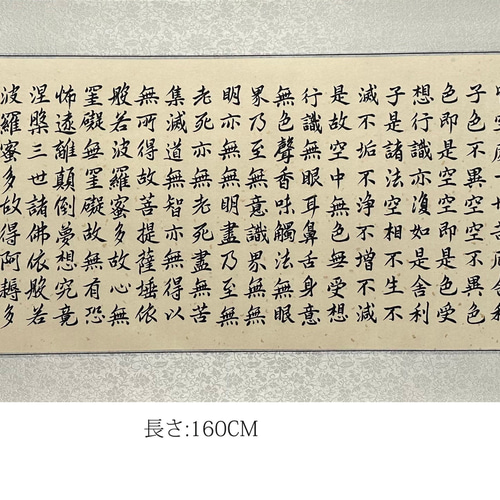 子色不異空空不異色
色即是空空即是色受
想行識亦復如是舍利
子是諸法空相不生不
滅不垢不淨不增不減
是故空中無色無受想
行識無眼耳鼻舌身意
無色聲香味觸法無眼
界乃至無意識界無無
明亦無無明盡乃至無
老死亦無老死盡無苦
集滅道無智亦無得以
無所得故菩提薩埵依
般若波羅蜜多故心無
罣礙無罣礙故無有恐
怖遠離顛倒夢想究竟
涅槃三世諸佛依般若
波羅蜜多故得阿耨多
長さ:160CM